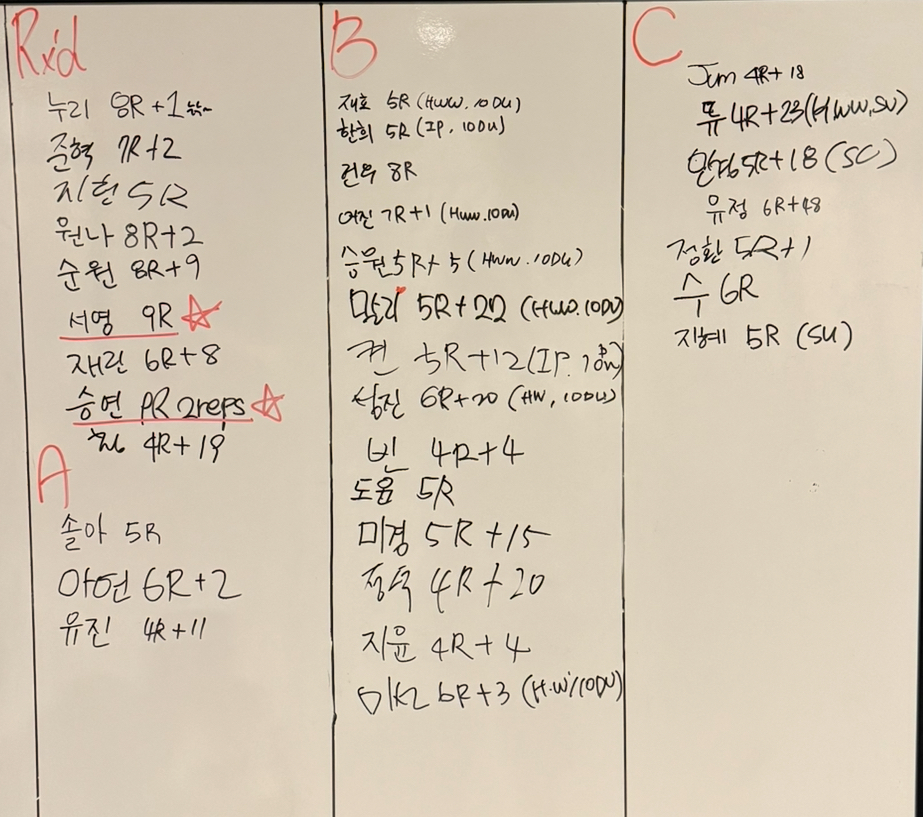 Rx'd
누리 8R+1
준혁 7R+2
지현 5R
원나 8R+2
순원 8R+9
서영 9R
재린 6R+8
승연 PR 2reps
4R+19
A
솔아 5R
아연 6R+2
유진 4R+11
B
재호 5R (HWW. 10DU)
한희 5R (IP, 10DU)
건우 8R
여진 7R+1 (HWW.10DU)
승원 5R+5 (HWW.10DU)
말리 5R+22 (HWW.10DU)
견 5R+12 (IP.
섬진 6R+20 (HW, 10DU)
빈 4R+4
도윰 5R
미경 5R+15
4R+20
지윤 4R+4
6R+3 (H.W/10DU)
C
Jum 4R+18
4R+23(HWW,SU)
5R+18 (SC)
유정 6R+48
정환 5R+1
수 6R
지혜 5R (SU)